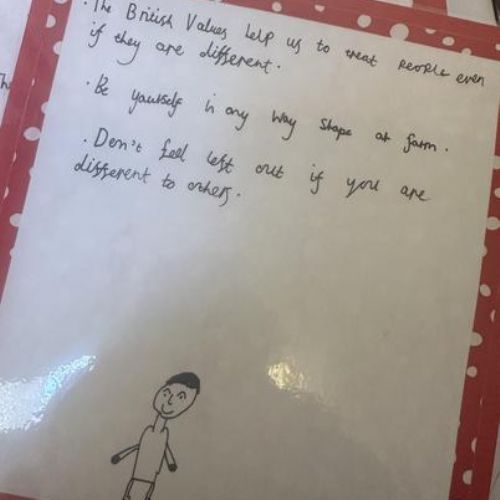 · The British Values help us to treat people even
if they are different.
· Be yourself in any way shape or form.
· Don't feel left out if you are
different to others.
Th